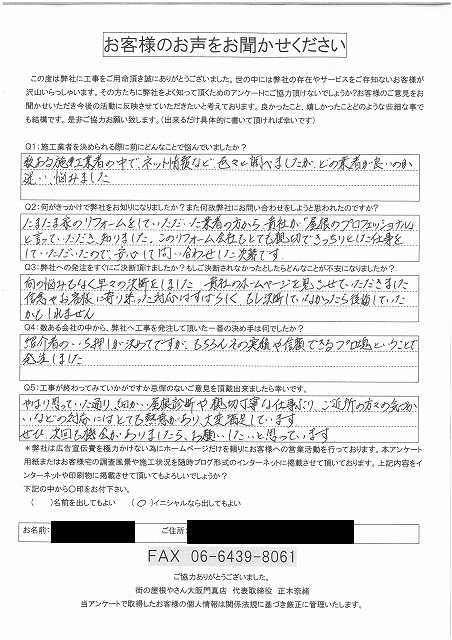 お客様のお声をお聞かせください
この度は弊社に工事をご用命頂き誠にありがとうございました。世の中には弊社の存在やサービスをご存知ないお客様が
沢山いらっしゃいます。その方たちに弊社をよく知って頂くためのアンケートにご協力頂けないでしょうか?お客様のご意見をお
聞かせいただき今後の活動に反映させていただきたいと考えております。良かったこと、嬉しかったことどのような些細な事で
も結構です。是非ご協力お願い致します。(出来るだけ具体的に書いて頂ければ幸いです)
Q1:施工業者を決められる際に前にどんなことで悩んでいましたか?
数ある施工業者の中で、ネット情報など、色々と調べましたが、どの業者が良いのか
迷い、悩みました
Q2:何がきっかけで弊社をお知りになりましたか?また何故弊社にお問い合わせをしようと思われたのですか?
たまたま家のリフォームをしていただいた業者の方から、貴社が"屋根のプロフェッショナル"
と言っていただき、知りました。このリフォーム会社もとても親切できっちりとした仕事を
していただいたので、安心して問い合わせした次第です。
Q3:弊社への発注をすぐにご決断頂けましたか?もしご決断されなかったとしたらどんなことが不安になりましたか?
何の悩みもなく早々の決断をしました 貴社のホームページを見させていただきました
信念やお客様に寄り添った対応はすばらしく、もし決断していなかったら後悔していた
かもしれません
Q4:数ある会社の中から、弊社へ工事を発注して頂いた一番の決め手は何でしたか?
紹介者のいち押しが決めてですが、もちろんその実績や信頼できるプロ集団ということで
発注しました
Q5:工事が終わってみていかがですか忌憚のないご意見を頂戴出来ましたら幸いです。
やはり思っていた通り、細かい屋根診断や親切丁寧な仕事ぶり、ご近所の方々の気づか
いなどの対応にはとても熱意があり、大変満足しています
ぜひ、次回も機会がありましたら、お願いしたいと思っています
*弊社は広告宣伝費を極力かけない為にホームページだけを頼りにお客様への営業活動を行っております。本アンケート
用紙またはお客様宅の調査風景や施工状況を随時ブログ形式のインターネットに掲載させて頂いております。上記内容をイ
ンターネットや印刷物に掲載させて頂いてもよろしいでしょうか?
下記の中から○印をお付下さい。
( )名前を出してもよい (○)イニシャルなら出してもよい
お名前: ご住所:
FAX 06-6439-8061
ご協力ありがとうございました。
街の屋根やさん大阪門真店 代表取締役 正木奈緒
当アンケートで取得したお客様の個人情報は関係法規に基づき厳正に管理いたします。